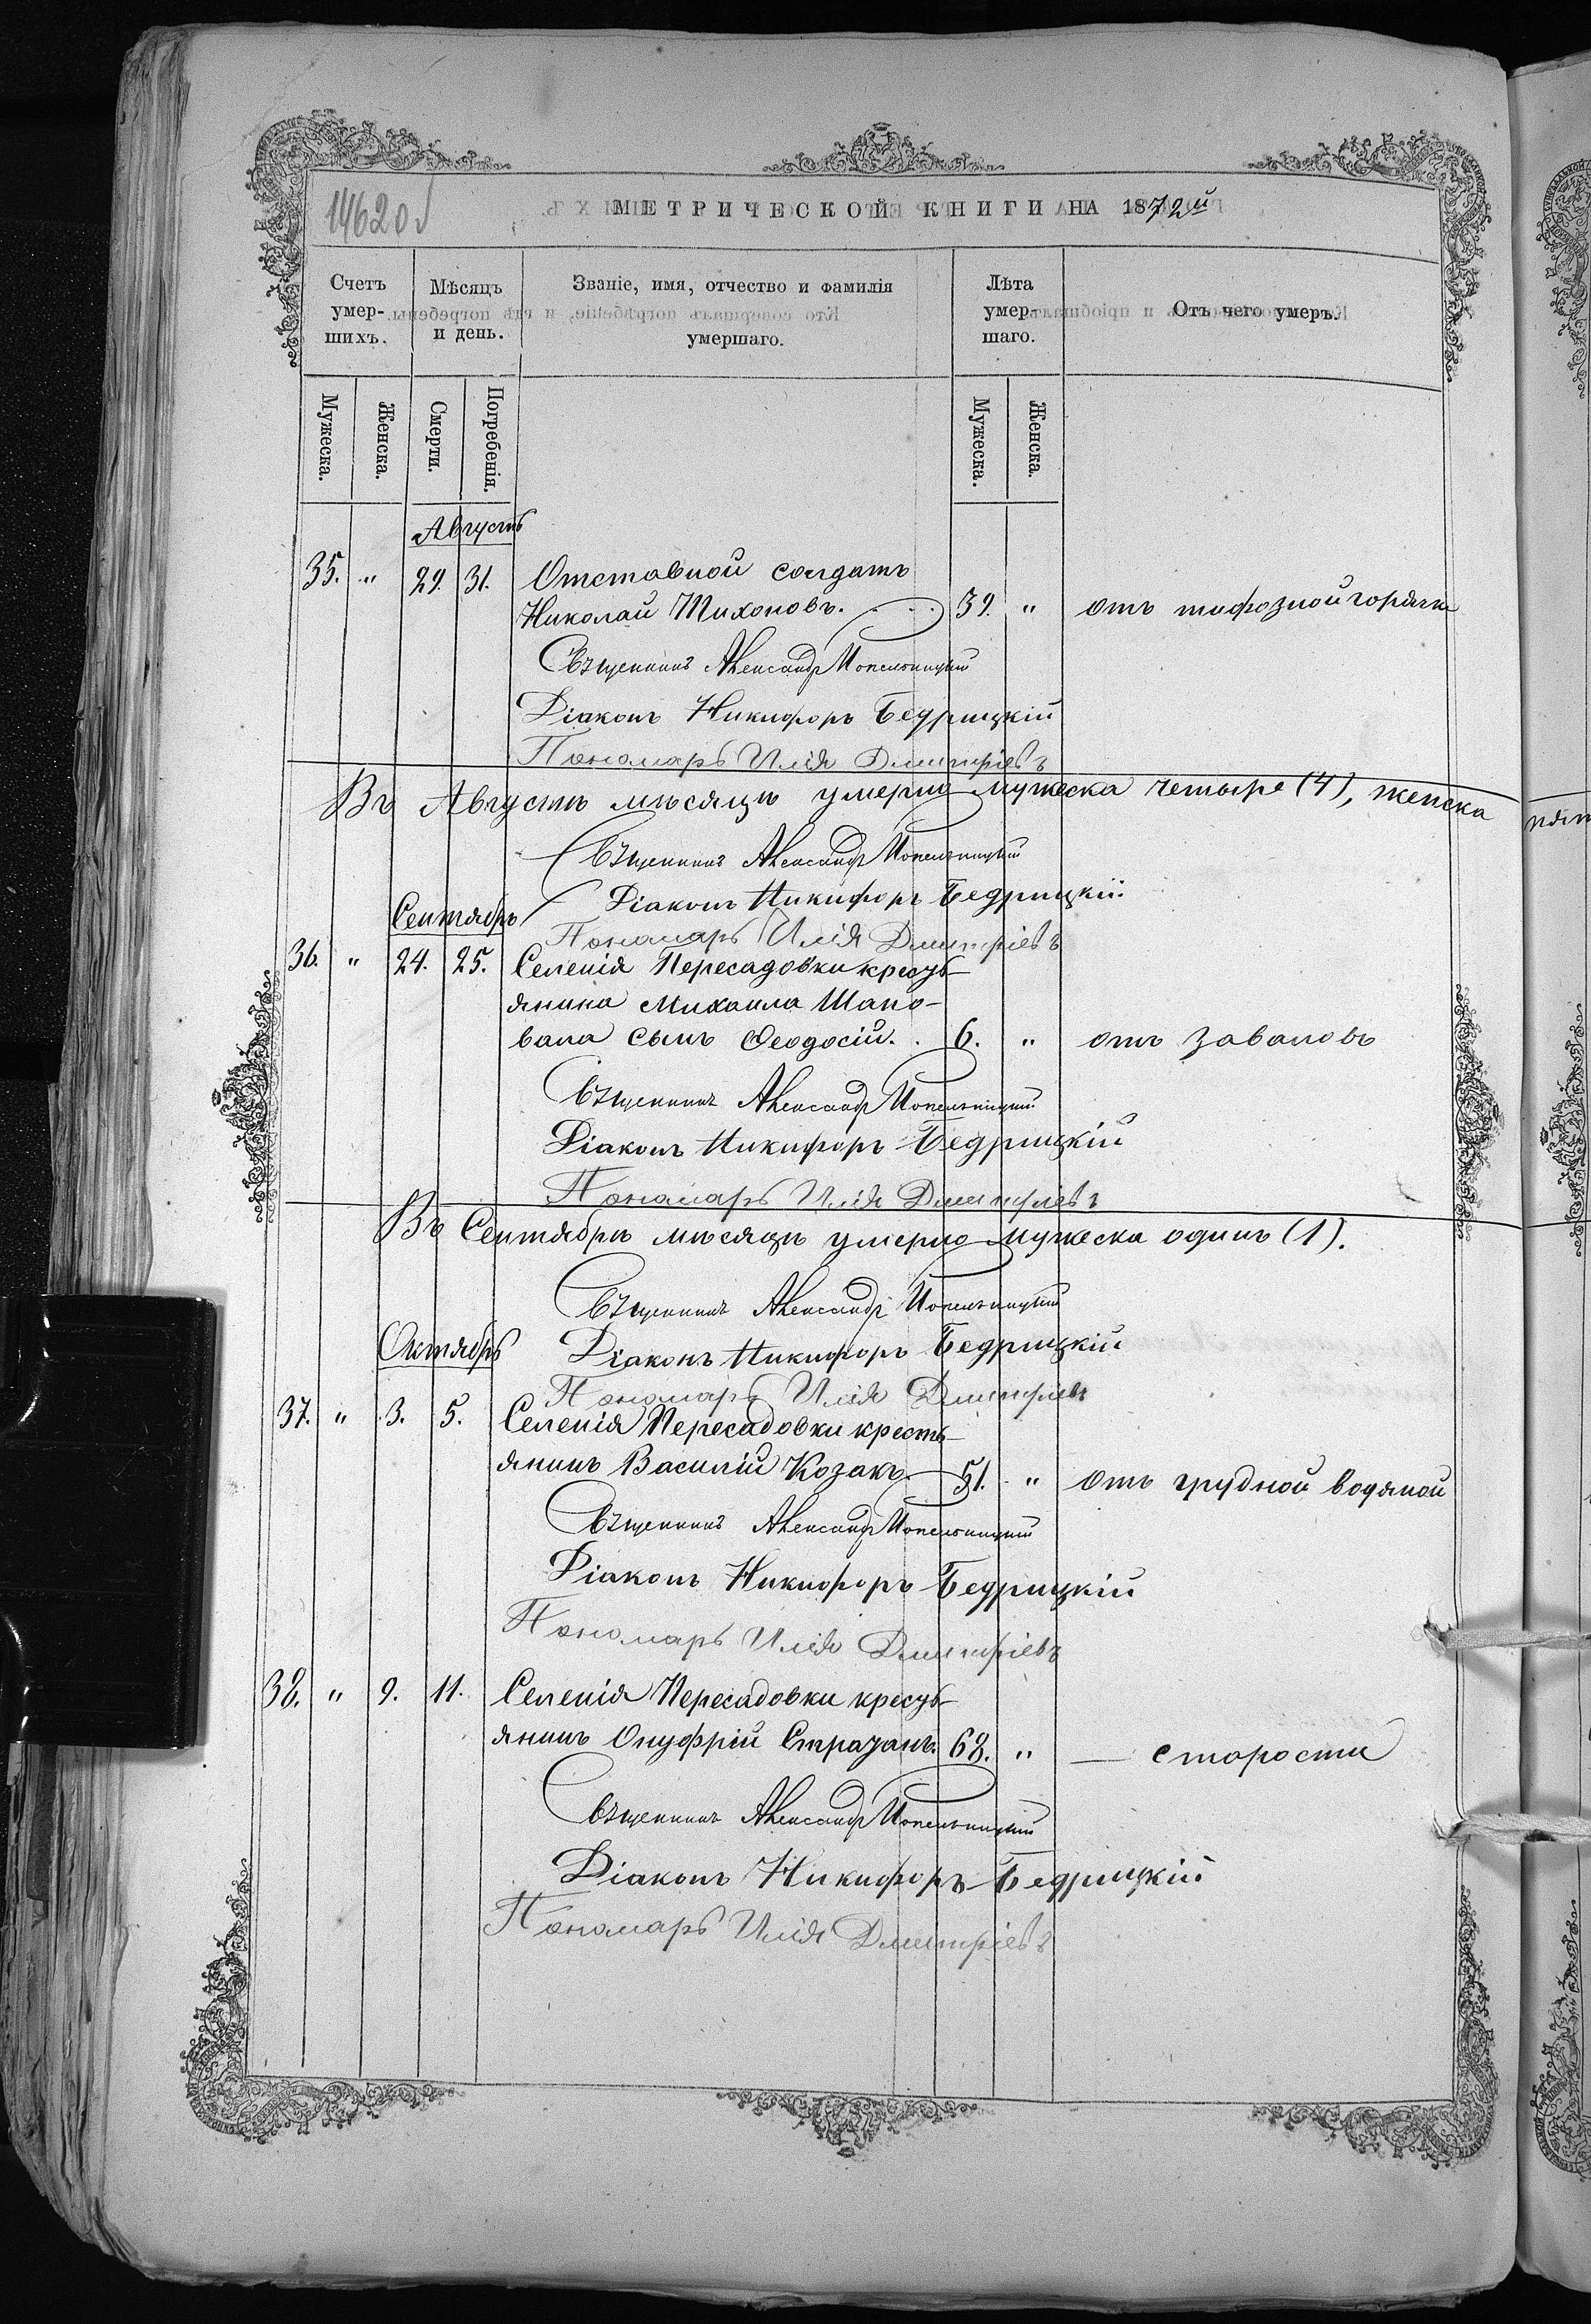 14620
МЕТРИЧЕСКОЙ КНИГИ НА 1872й
Счетъ умер-шихъ.
Мѣсяцъ и день.
Званіе, имя, отчество и фамилія умершаго.
Лѣта умер-шаго.
Отъ чего умеръ.
Мужеска.
Женска.
Смерти.
Погребенія.
Мужеска.
Женска.
Августъ
35. " 29. 31. Отставной солдатъ
Николай Тихоновъ. 39. " отъ тифозной горячки
Священникъ Александръ
Діаконъ Никифоръ Бедрицкій
Пономарь Илія Дмитріевъ
Въ Августѣ мѣсяцѣ умерло мужеска четыре (4), женска
Священникъ Александръ
Діаконъ Никифоръ Бедрицкій
Сентябрь
Пономарь Илія Дмитріевъ
36. " 24. 25. Селенія Пересадовки кресть-
янина Михаила Шапо-
вала сынъ Ѳеодосій. 6. " отъ заваловъ
Священникъ Александръ
Діаконъ Никифоръ Бедрицкій
Пономарь Илія Дмитріевъ
Въ Сентябрѣ мѣсяцѣ умерло мужеска одинъ (1).
Священникъ Александръ
Октябрь
Діаконъ Никифоръ Бедрицкій
Пономарь Илія Дмитріевъ
37. " 3. 5. Селенія Пересадовки кресть-
янинъ Василій Козакъ. 51. " отъ грудной водяной
Священникъ Александръ
Діаконъ Никифоръ Бедрицкій
Пономарь Илія Дмитріевъ
38. " 9. 11. Селенія Пересадовки кресть-
янинъ Онуфрій 68. " — старости
Священникъ Александръ
Діаконъ Никифоръ Бедрицкій
Пономарь Илія Дмитріевъ